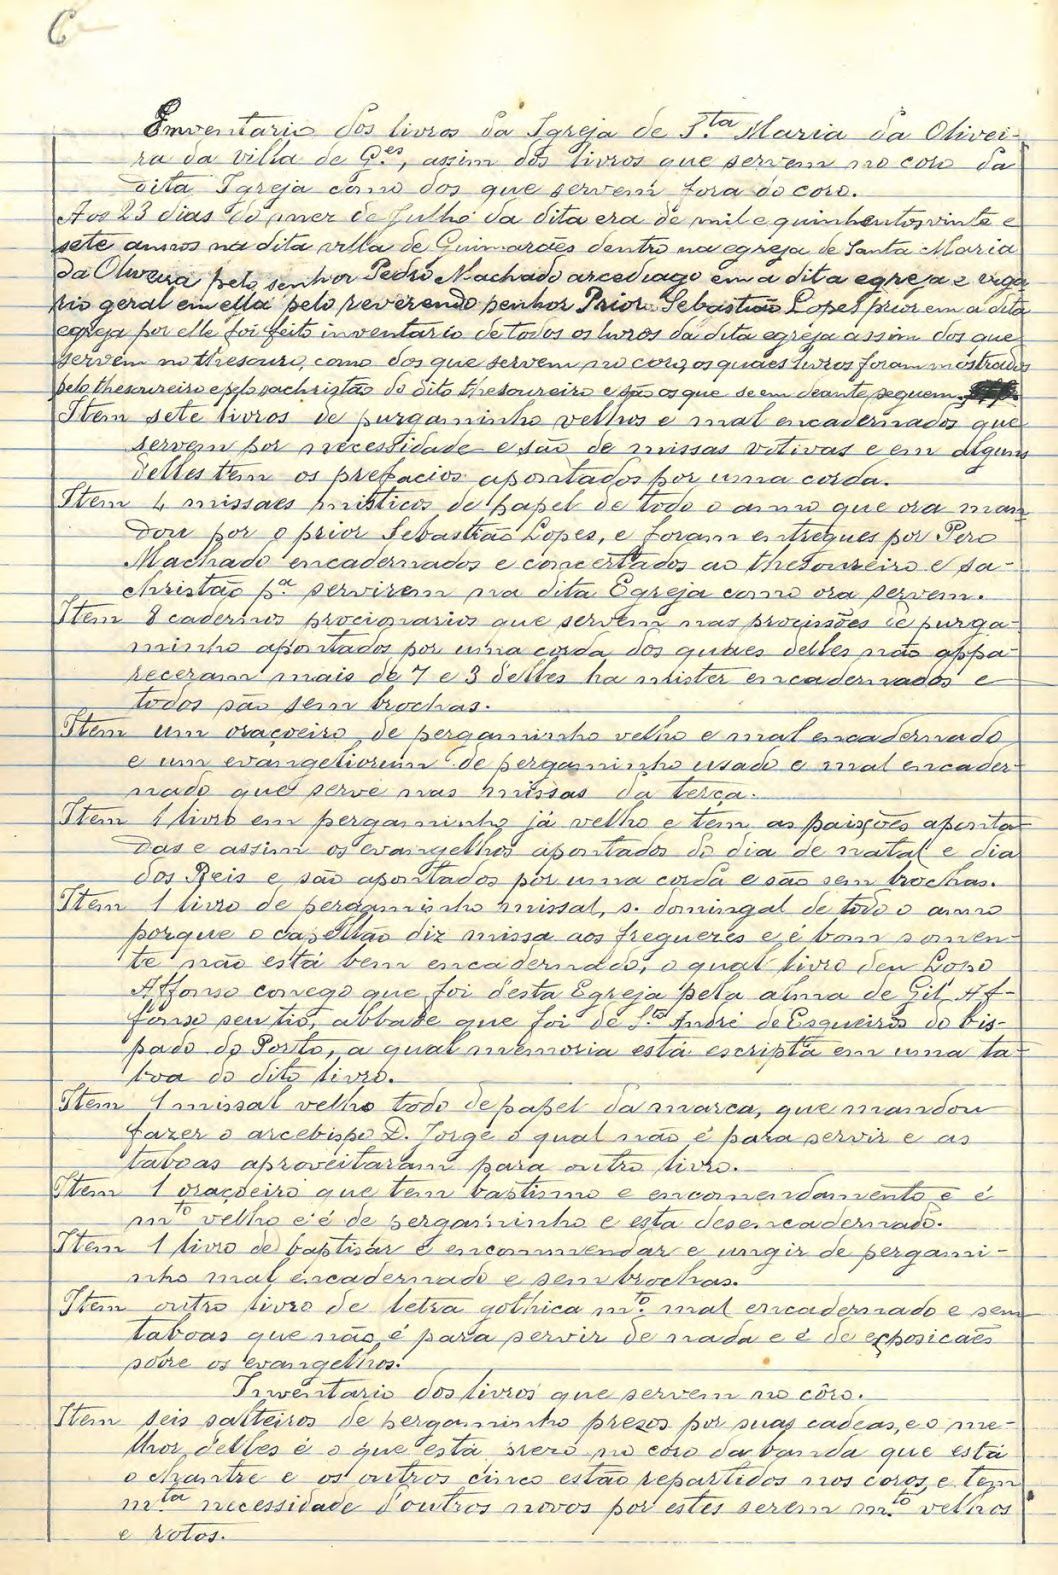 6
Emventario dos livros da Igreja de S.ta Maria da Olivei-
ra da villa de G.es, assim dos livros que servem no coro da
dita Igreja como dos que servem fora do coro.
Aos 23 dias do mez de Julho da dita era de mil e quinhentos vinte e
sete annos na dita villa de Guimarães dentro na egreja de Santa Maria
da Oliveira pelo senhor Pedro Machado arcediago em a dita egreja e viga
rio geral em ella pelo reverendo senhor Prior Sebastião Lopes prior em a dita
egreja por elle foi feito inventario de todos os livros da dita egreja assim dos que
servem no thesouro, como dos que servem no coro, os quaes livros foram mostrados
pelo thesoureiro e pelo sachristão do dito thesoureiro e são os que se em deante seguem.
Item sete livros de purgaminho velhos e mal encadernados que
servem por necessidade e são de missas votivas e em alguns
delles tem os prefacios apontados por uma corda.
Item 4 missaes misticos de papel de todo o anno que ora man
dou por o prior Sebastião Lopes, e foram entregues por Pero
Machado encadernados e concertados ao thesoureiro e sa-
christão p.a servirem na dita Egreja como ora servem.
Item 8 cadernos procionarios que servem nas procissões de purga-
minho apontados por uma corda dos quaes delles não appa-
receram mais de 7 e 3 delles ha mister encadernados e
todos são sem brochas.
Item um oraçoeiro de pergaminho velho e mal encadernado
e um evangeliorum de pergaminho usado e mal encader-
nado que serve nas missas da terça.
Item 1 livro em pergaminho já velho e tem as paixões aponta
das e assim os evangelhos apontados do dia de natal e dia
dos Reis e são apontados por uma corda e são sem brochas.
Item 1 livro de pergaminho missal, s. domingal de todo o anno
porque o capellão diz missa aos freguezes e é bom somen-
te não está bem encadernado, o qual livro deu Lopo
Affonso conego que foi d'esta Egreja pela alma de Gil Af-
fonso seu tio, abbade que foi de S.to André de Esqueiros do bis-
pado do Porto, a qual memoria está escripta em uma ta-
boa do dito livro.
Item 1 missal velho todo de papel da marca, que mandou
fazer o arcebispo D. Jorge o qual não é para servir e as
taboas aproveitaram para outro livro.
Item 1 oraçoeiro que tem bastismo e encomendamento e é
m.to velho e é de pergaminho e está desencadernado.
Item 1 livro de baptisar e encommendar e ungir de pergami-
nho mal encadernado e sem brochas.
Item outro livro de letra gothica m.to mal encadernado e sem
taboas que não é para servir de nada e é de exposicaes
sobre os evangelhos.
Inventario dos livros que servem no côro.
Item seis salteiros de pergaminho prezos por suas cadeas, e o me-
lhor delles é o que está prezo no coro da banda que está
o chantre e os outros cinco estão repartidos nos coros, e tem
m.ta necessidade d'outros novos por estes serem m.to velhos
e rotos.